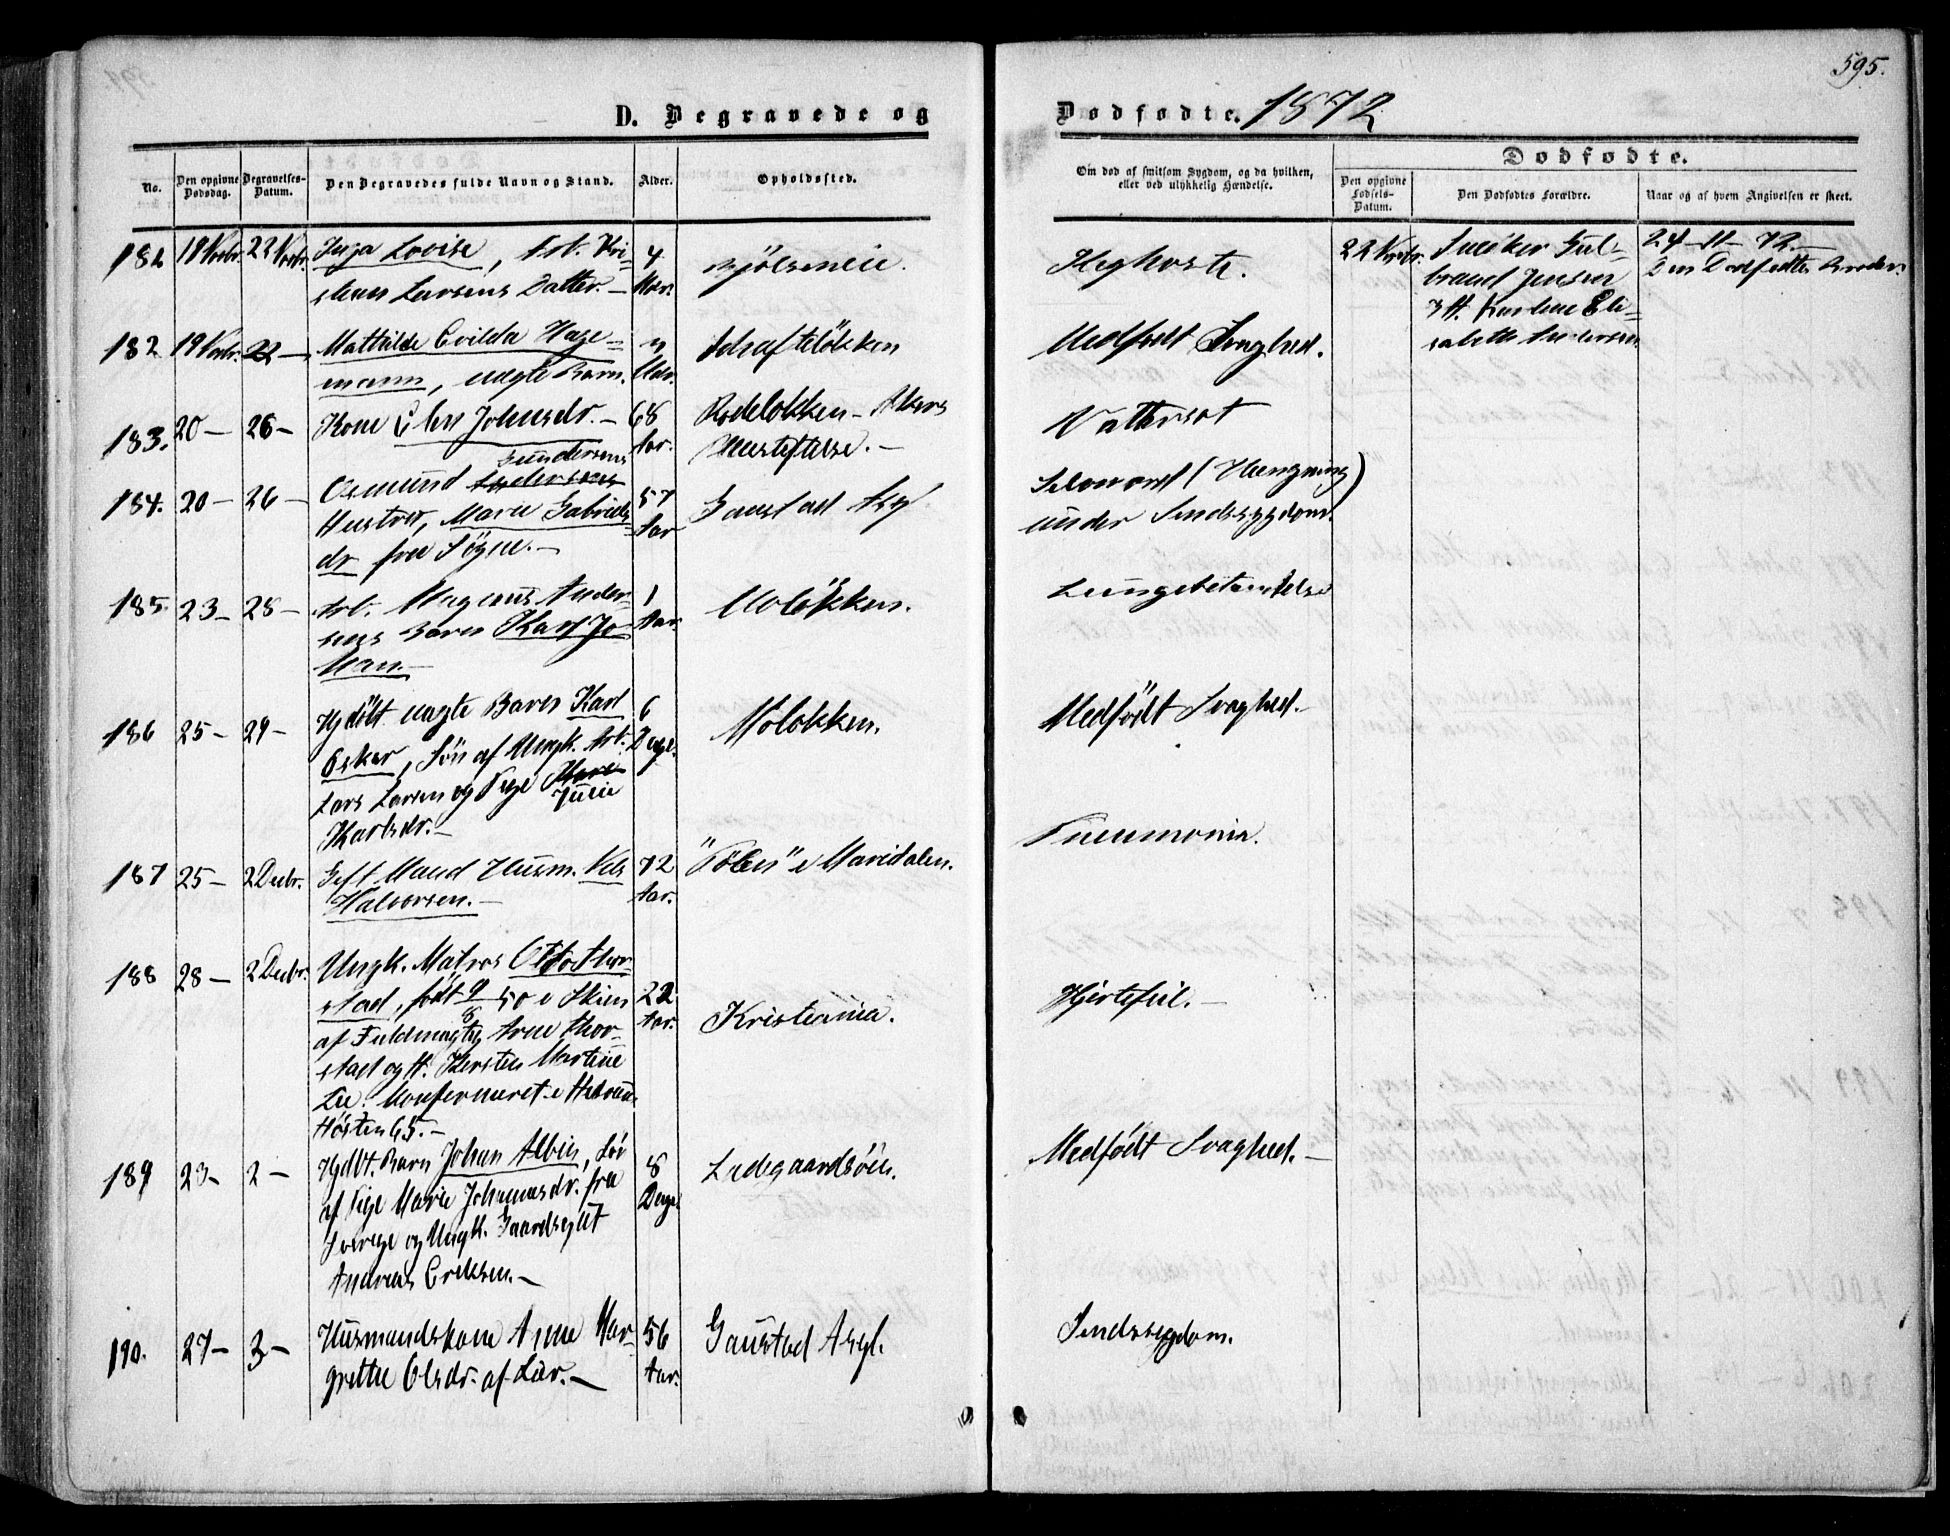 595.
D. Begravede og
Dødfødte. 1872
No.
Den opgivne Dødsdag.
Begravelses-Datum.
Den Begravedes fulde Navn og Stand.
Alder.
Opholdssted.
Om død af smitsom Sygdom, og da hvilken,
eller ved ulykkelig Hændelse.
Dødfødte.
Den opgivne Fødsels-Datum.
Den Dødfødtes Forældre.
Naar og af hvem Angivelsen er skeet.
181 18 Novbr. 22 Novbr. Lovise, Arb. Kri-
stian Larsens Datter. —
4 Mdr.
Bjølsenveien.
Kighoste.
22 Novbr.
Gul-
brand Jensen
& H. Karline Eli-
sabeth Andersen
24-11-72. —
Den Dødfødtes
182. 19 Novbr. 22 — Mathilde Evilda Hage-
mann, uægte Barn.
11 Mdr.
Schafteløkken
Medfødt Svaghed.
183. 20 — 26 — Kone Johnsdr. —
68 Aar.
Rodeløkken — Akers
Vattersot
184. 20 — 26 — Osmund Andersens Gundersens
Hustro, Marie Gabriels-
dr fra Søgne. —
57 Aar
Gaustad Asyl.
Selvmord (Hængning)
under Sindssygdom.
185. 23 — 28 — Arb. Magnus Ander-
sens Barn Karl Jo-
han. —
1 Aar.
Moløkken.
Lungebetændelse
186 25 — 29 — Hjdøbt uægte Barn Karl
Oskar, Søn af Ungk. Arb.
Lars Larsen og Pige Julie
Karlsdr. —
6 Dage.
Moløkken.
Medfødt Svaghed. —
187 25 — 2 Decbr. Gift Mand Husm. Nils
Halvorsen. —
72 Aar.
"Pølen" i Maridalen.
Pneumonia.
188 28 — 2 Decbr. Ungk. Matros Otto Thor-
stad, født 9/6 50 i Skien
af Fuldmægtig Arne Thor-
stad og H. Kirsten Martine
Lie. Konfirmeret i
Høsten 65. —
22 Aar.
Kristiania.
Hjertefeil. —
189 23 — 2 — Hjdbt. Barn Johan Albin, Søn
af Pige Marie Johannesdr. fra
Sverige og Ungk. Gaardsgut
Andreas Eriksen. —
8 Dage.
Ladegaardsøen.
Medfødt Svaghed. —
190. 27 — 3 — Husmandskone Anne Mar-
grethe Olsdr. af Lier. —
56 Aar.
Gaustad Asyl.
Sindssygdom.